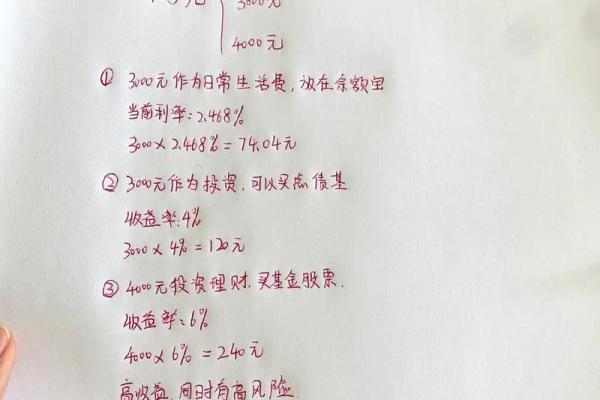 3000元
4000元
① 3000元作为日常生活费,放在余额里
当前利率:2.468%
3000×2.468%=74.04元
② 3000元作为投资,可以买点债基.
收益率:4%
3000×4%=120元
③ 4000元投资理财.买基金股票.
收益率:6%
4000×6%=240元
高收益,同时有高风险